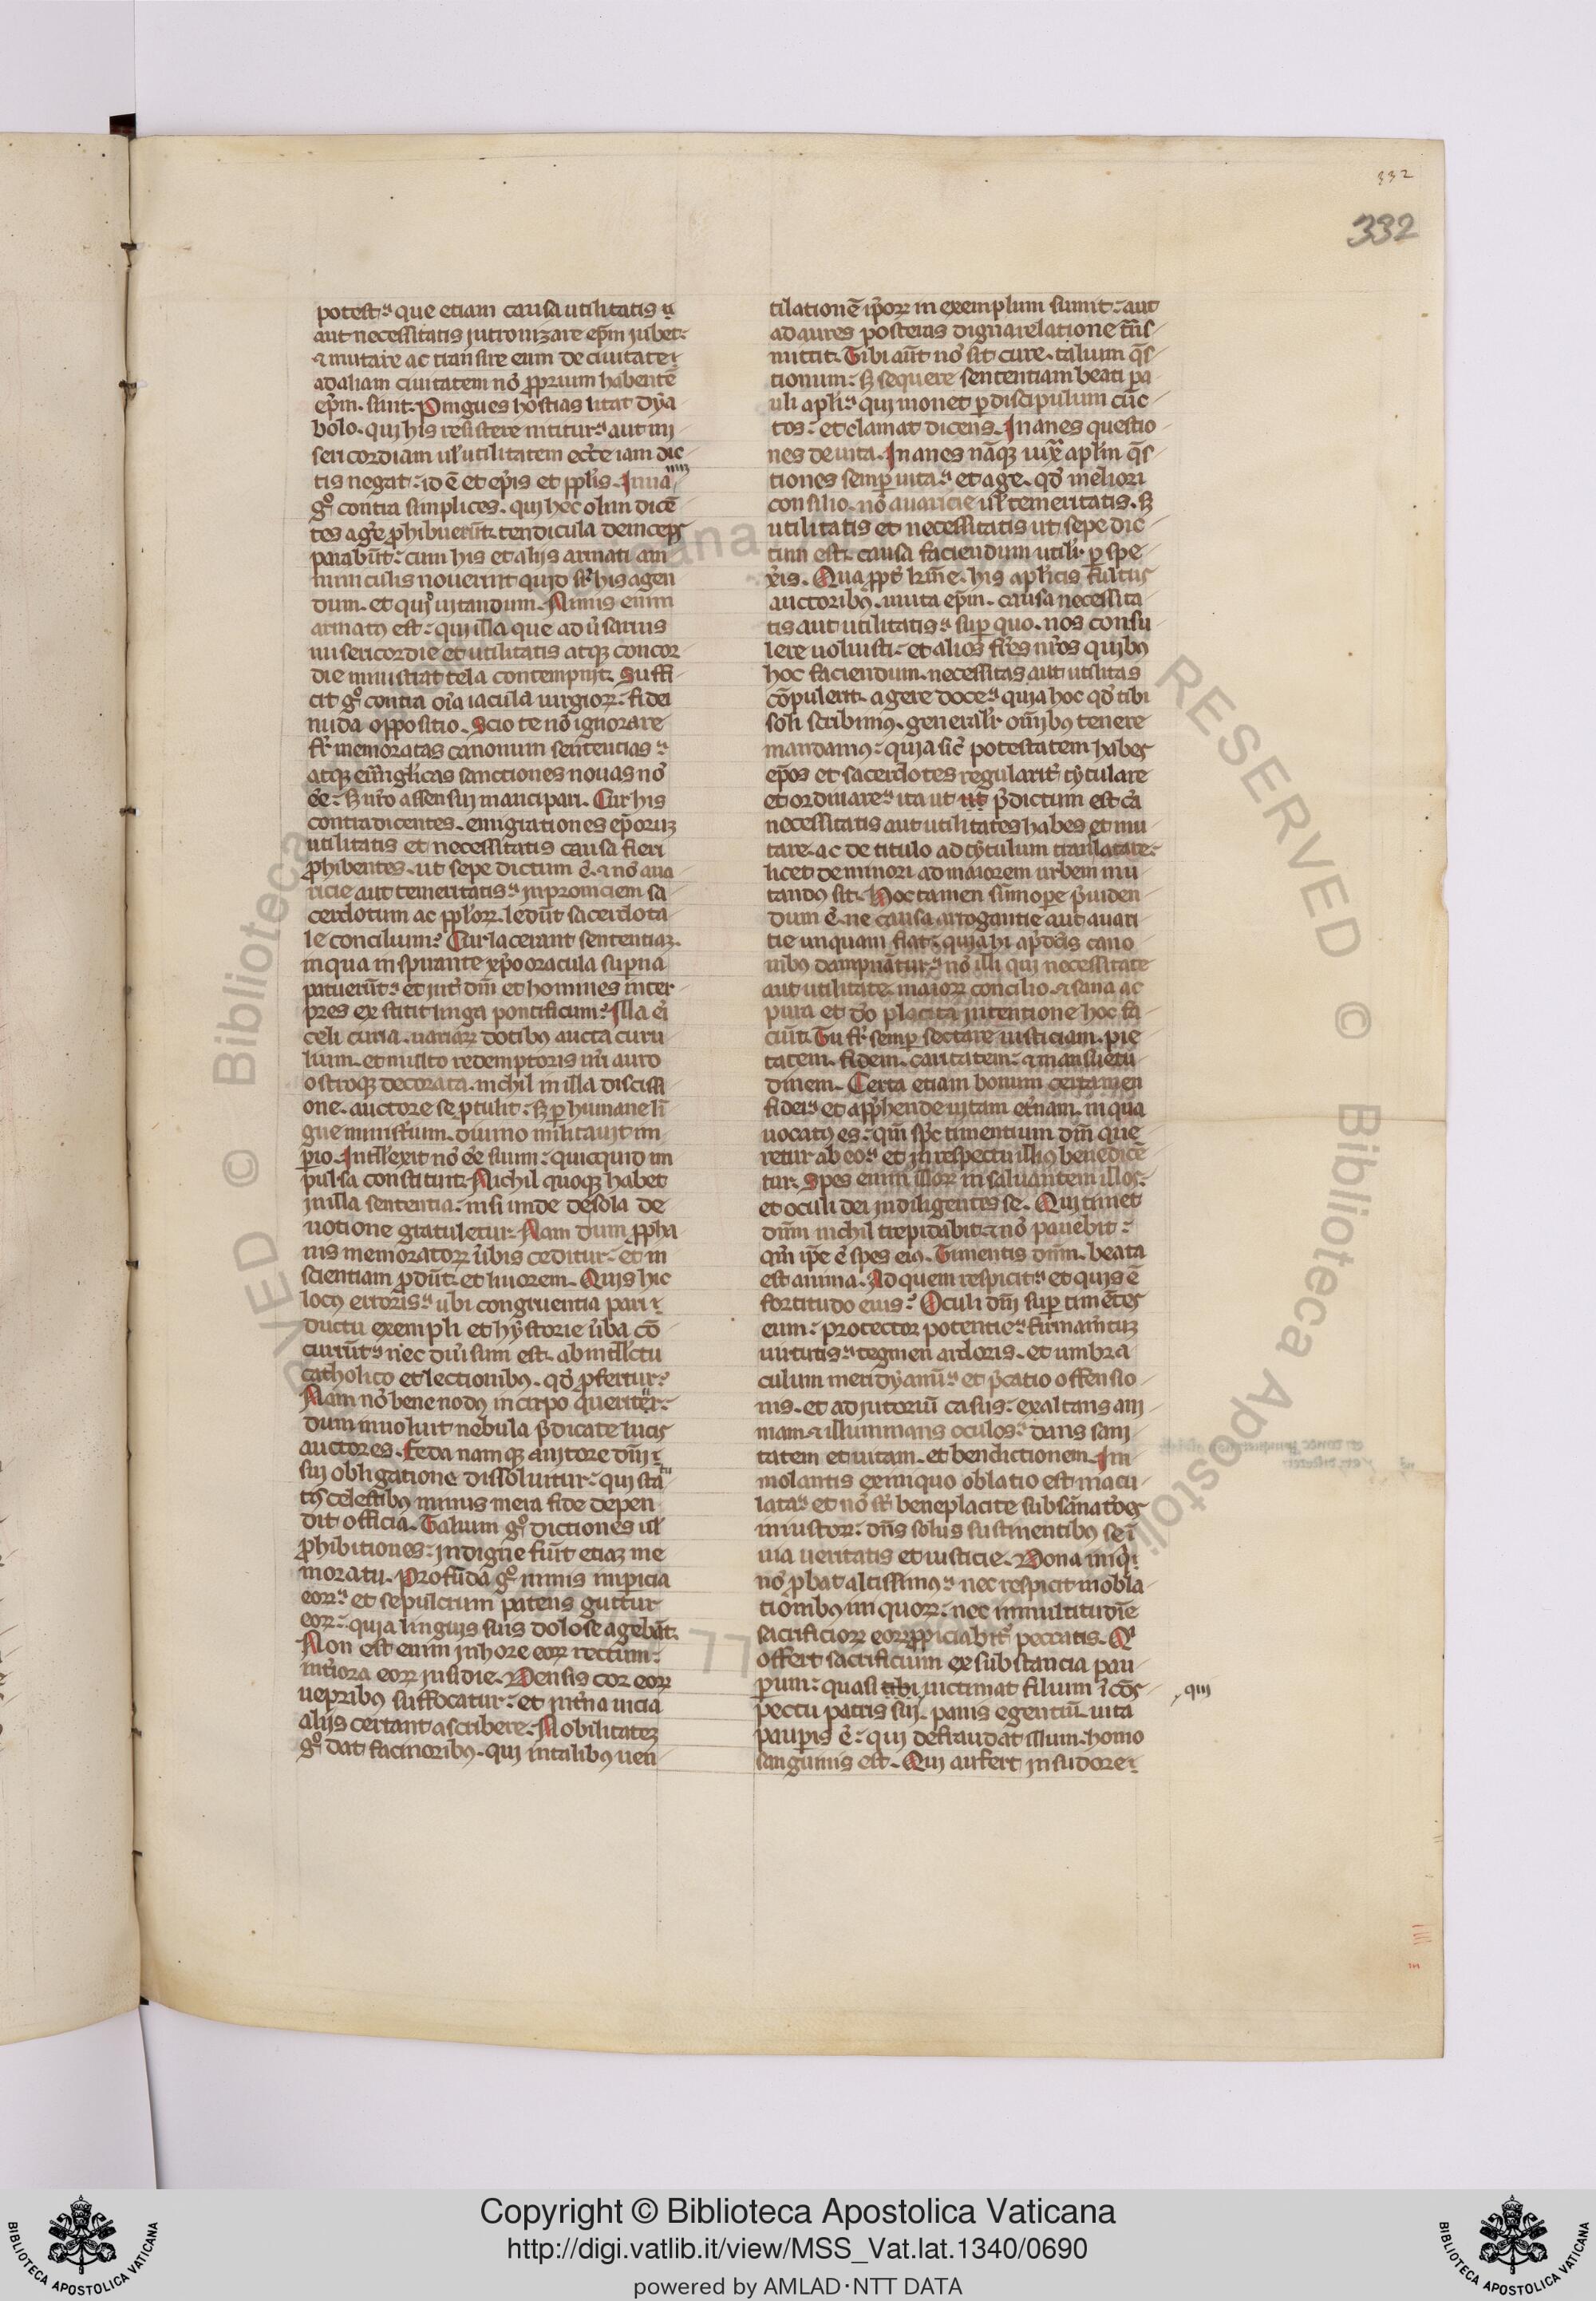 332
332
potest᷒ que etiam causa utilitatis
aut necessitatis intronizare ep̄m iubet.
⁊ mutare ac transire eum de ciuitate
ad aliam ciuitatem nō p̄prium habentē
ep̄m. sunt. Pingues hostias litat dya
bolo. qui his resistere nititur aut mi
sericordiam ul̓ utilitatem ecc̄e iam dic
tis negat id ē et ep̄is et pp̄lis.
gͦ contra simplices. qui hec olim dicē
tes aḡe p̄hibuerūt. tendicula deinceps
parabūt. cum his et alijs armati am
miniculis nouerint quid sr̄ his agen
dum. et qui uitandum. Armis enim
armatꝰ est. qui illa que aduersarius
misericordie et utilitatis atqꝫ concor
die ministrat tela contempnit. Suffi
cit gͦ contra oīa iacula fidei
nuda oppositio. Scio te nō ignorare
fr̄ memoratas canonum sententias
atqꝫ euūglicas sanctiones nouas nō
ēe. sꝫ nr̄o assensui mancipari. Cur his
contradicentes. emigrationes ep̄oruꝫ
utilitatis et necessitatis causa fieri
p̄hibentes. ut sepe dictum ē. ⁊ nō aua
ricie aut temeritatis in prouinciem sa
cerdotum ac pp̄lorꝝ. ledūt sacerdota
le concilium. Cur lacerant sententiaꝫ.
in qua inspirante xp̄o oracula superna
patuerūt. et int̄ dm̄ et homines inter
pres exstitit lingua pontificum. Illa ei
celi curia. uariarꝝ dotibꝰ aucta curu
lium. et multo redemptoris nr̄i auro
ostroqꝫ decorata. nichil in illa disciss
one. auctore se ptulit. sꝫ p humane li
gue ministrum. diuino militauit im
perio. Intellexit nō ēe suum. quicquid im
pulsa constituit. Nichil quoqꝫ habet
in illa sententia. nisi unde de sola de
uotione gratuletur. Nam dum ppha
nis memoratorꝝ ūbis ceditur. et in
scientiam pdūt. et liuorem. Quis hic
locꝰ erroris ubi congruentia pari
ductu exempli et hystorie ūba cō
currūt nec diuisum est. ab intllc̄tu
catholico et lectionibꝰ. qd̓ p̄fertur.
Nam nō bene nodꝰ in cirpo queritur.
dum inuoluit nebula p̄dicate lucis
auctores. Feda namqꝫ
sui obligatione dissoluitur. qui sta
tꝰ celestibꝰ minus mera fide depen
dit officia. Talium gͦ dictiones ul̓
p̄hibitiones indigne fiūt etiaꝫ me
moratu. Profūda gͦ nimis imperitia
eorꝝ et sepulcrum patens guttur
eorꝝ. quia linguis suis dolose agebāt.
Non est enim in hore eorꝝ rectum.
int̄iora eorꝝ insidie. Densis cor eorꝝ
uepribus suffocatur. et int̄na uicia
alijs certant ascribere. Nobilitateꝫ
gͦ dat facinoribꝰ. qui in talibꝰ uen
tilationē ip̄orꝝ in exemplum sumit. aut
ad aures posteras digna relatione trās
mittit. Tibi aūt nō sit cure. talium q̄s
tionum. sꝫ sequere sententiam beati pa
uli apl̄i qui monet p discipulum cūc
tos. et clamat dicens. Inanes questio
nes deuita. Inanes nāqꝫ iuxͣ apl̄m q̄s
tiones semp uita et age. qd̓ meliori
consilio. nō auaricie ul̓ temeritatis. sꝫ
utilitatis et necessitatis ut sepe dic
tum est. causa faciendum utilr̄ pspe
xeris. Quapropt̄ his apl̄icis fultus
auctoribꝰ. muta ep̄m. causa necessita
tis aut utilitatis sup quo. nos consu
lere uoluisti. et alios fr̄es nr̄os quibꝰ
hoc faciendum. necessitas aut utilitas
cōpulerit. agere doce quia hoc qd̓ tibi
soli scribimꝰ. generalr̄ omībus tenere
mandamꝰ. quia sic̄ potestatem habes
ep̄os et sacerdotes regularit̄ tytulare
et ordinare ita ut ut p̄dictum est cā
necessitatis aut utilitates habes et mu
tare. ac de titulo ad tytulum translatare.
licet de minori ad maiorem urbem mu
tandꝰ sit. Hoc tamen sūmope p̄uiden
dum ē. ne causa arrogantie aut auari
tie unquam fiat. quia hi apd̓ cano
nibꝰ dampnātur nō illi qui necessitate
aut utilitate. maiorꝝ concilio. ⁊ sana ac
pura et dō placita intentione hoc fa
ciūt. Tu fr̄ semp sectare iusticiam. pie
tatem. fidem. caritatem. ⁊ mansuetu
dinem. Certa etiam bonum certamen
fidei et app̄hende uitam et̄nam. in qua
uocatꝰ es. qm̄ spc̄ timentium dm̄ que
retur ab eo et in respectu illiꝰ benedice
tur. Spes enim illorꝝ in saluantem illos.
et oculi dei in diligentes se. Qui timet
dūm nichil trepidabit. ⁊ nō pauebit
qm̄ ipe ē spes eiꝰ. Timentis dūm. beata
est anima. Ad quem respicit et quis ē
fortitudo eius. Oculi dm̄ sup timētes
eum. protector potentie firmamtuꝫ
uirtutis tegmen ardoris. et umbra
culum meridyanū et p̄catio offensio
nis. et adiutoriū casus. exaltans ani
mam. ⁊ illuminans oculos dans sani
tatem et uitam. et bendictionem. Im
molantis ex iniquo oblatio est macu
lata et nō st̄ beneplacite subsānatōes
iniustorꝝ. dn̄s solus sustinentibꝰ se ī
uia ueritatis et iusticie. Dona iniqͥ
nō pbat altissimꝰ nec respicit in obla
tionibus iniquorꝝ. nec in multitudīe
sacrificiorꝝ eorꝝ ppiciabit̄ peccatis. Qͥ
offert sacrificium ex substancia pau
perum. quasi tibi uictimat filium ī cōs
pectu patris sui. panis egentiū. uita
pauperis ē. qui defraudat illum. homo
sanguinis est. Qui aufert in sudore
qui
Copyright © Biblioteca Apostolica Vaticana
http://digi.vatlib.it/view/MSS_Vat.lat.1340/0690
powered by AMLAD·NTT DATA
BIBLIOTECA APOSTOLICA VATICANA
BIBLIOTECA APOSTOLICA VATICANA